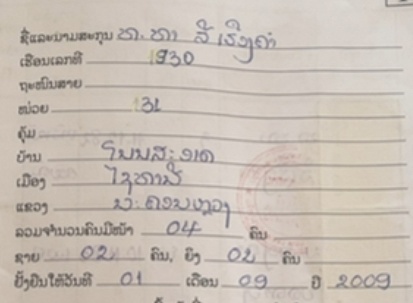 ຊື່ແລະນາມສະກຸນ ທ. ທາ ສີ ເຮືອງຄຳ
ເຮືອນເລກທີ 1930
ຖະໜົນສາຍ
ໜ່ວຍ 131
ຄຸ້ມ
ບ້ານ ໂນນສະຫງາດ
ເມືອງ ໄຊທານີ
ແຂວງ ນະຄອນຫຼວງ
ລວມຈຳນວນຄົນມີໜ້າ 04 ຄົນ
ຊາຍ 02 ຄົນ, ຍິງ 02 ຄົນ
ຢັ້ງຢືນໃຫ້ວັນທີ 01 ເດືອນ 09 ປີ 2009